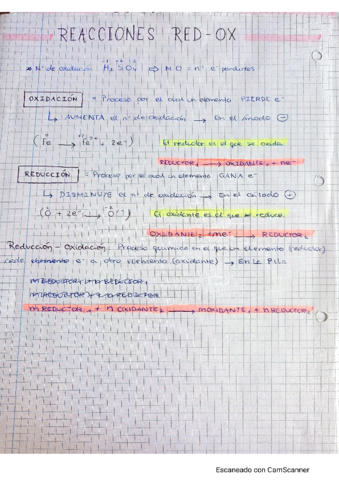 REACCIONES RED-OX
* Nº de oxidación H₂SO₄ ⇨ N.O = nº e⁻ perdidos
OXIDACIÓN = Proceso por el cual un elemento PIERDE e⁻
↳ AUMENTA el nº de oxidación → En el ánodo ⊖
(Fe → Fe²⁺ + 2e⁻) El reductor es el que se oxida
REDUCTOR₁ → OXIDANTE₁ + ne⁻
REDUCCIÓN = Proceso por el cual un elemento GANA e⁻
↳ DISMINUYE el nº de oxidación → En el cátodo ⊕
(O + 2e⁻ → O²⁻) El oxidante es el que se reduce
OXIDANTE₂ + me⁻ → REDUCTOR₂
Reducción - Oxidación: Proceso químico en el que un elemento (reductor)
cede e⁻ a otro elemento (oxidante) → En la Pila
m REDUCTOR₁ + n OXIDANTE₂ → m OXIDANTE₁ + n REDUCTOR₂
Escaneado con CamScanner